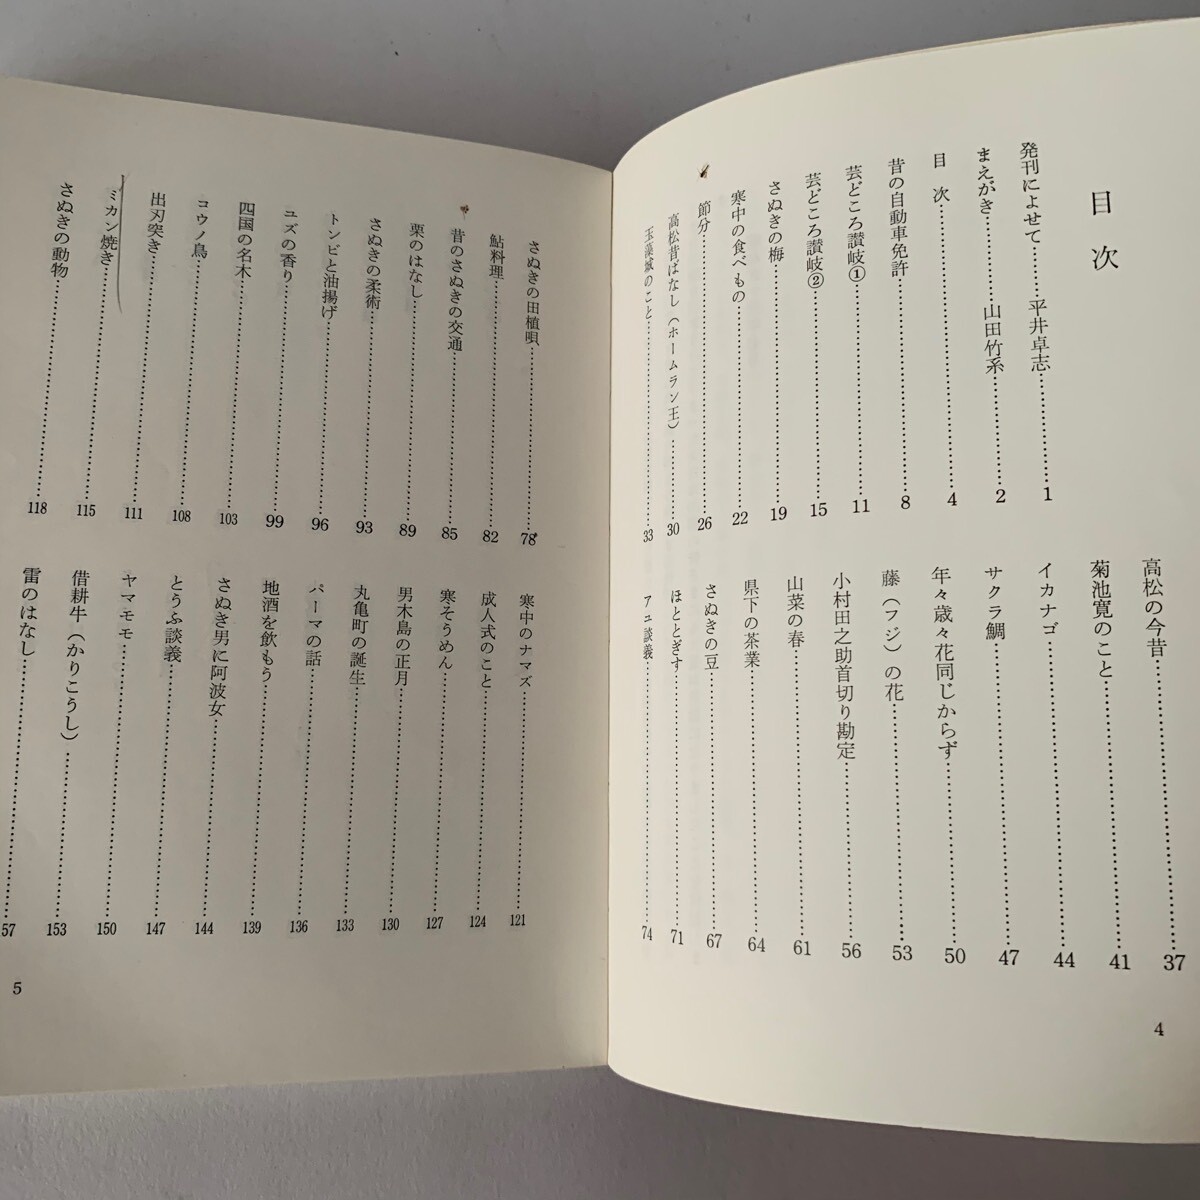 目次
発刊によせて……平井卓志……1
まえがき……山田竹系……2
目次……4
昔の自動車免許……8
芸どころ讃岐①……11
芸どころ讃岐②……15
さぬきの梅……19
寒中の食べもの……22
節分……26
高松昔ばなし（ホームラン王）……30
玉藻城のこと……33
高松の今昔……37
菊池寛のこと……41
イカナゴ……44
サクラ鯛……47
年々歳々花同じからず……50
藤（フジ）の花……53
小村田之助首切り勘定……56
山菜の春……61
県下の茶業……64
さぬきの豆……67
ほととぎす……71
アユ談義……74
4
さぬきの田植唄……78
鮎料理……82
昔のさぬきの交通……85
栗のはなし……89
さぬきの柔術……93
トンビと油揚げ……96
ユズの香り……99
四国の名木……103
コウノ鳥……108
出刃突き……111
ミカン焼き……115
さぬきの動物……118
寒中のナマズ……121
成人式のこと……124
寒そうめん……127
男木島の正月……130
丸亀町の誕生……133
パーマの話……136
地酒を飲もう……139
さぬき男に阿波女……144
とうふ談義……147
ヤマモモ……150
借耕牛（かりこうし）……153
雷のはなし……57
5